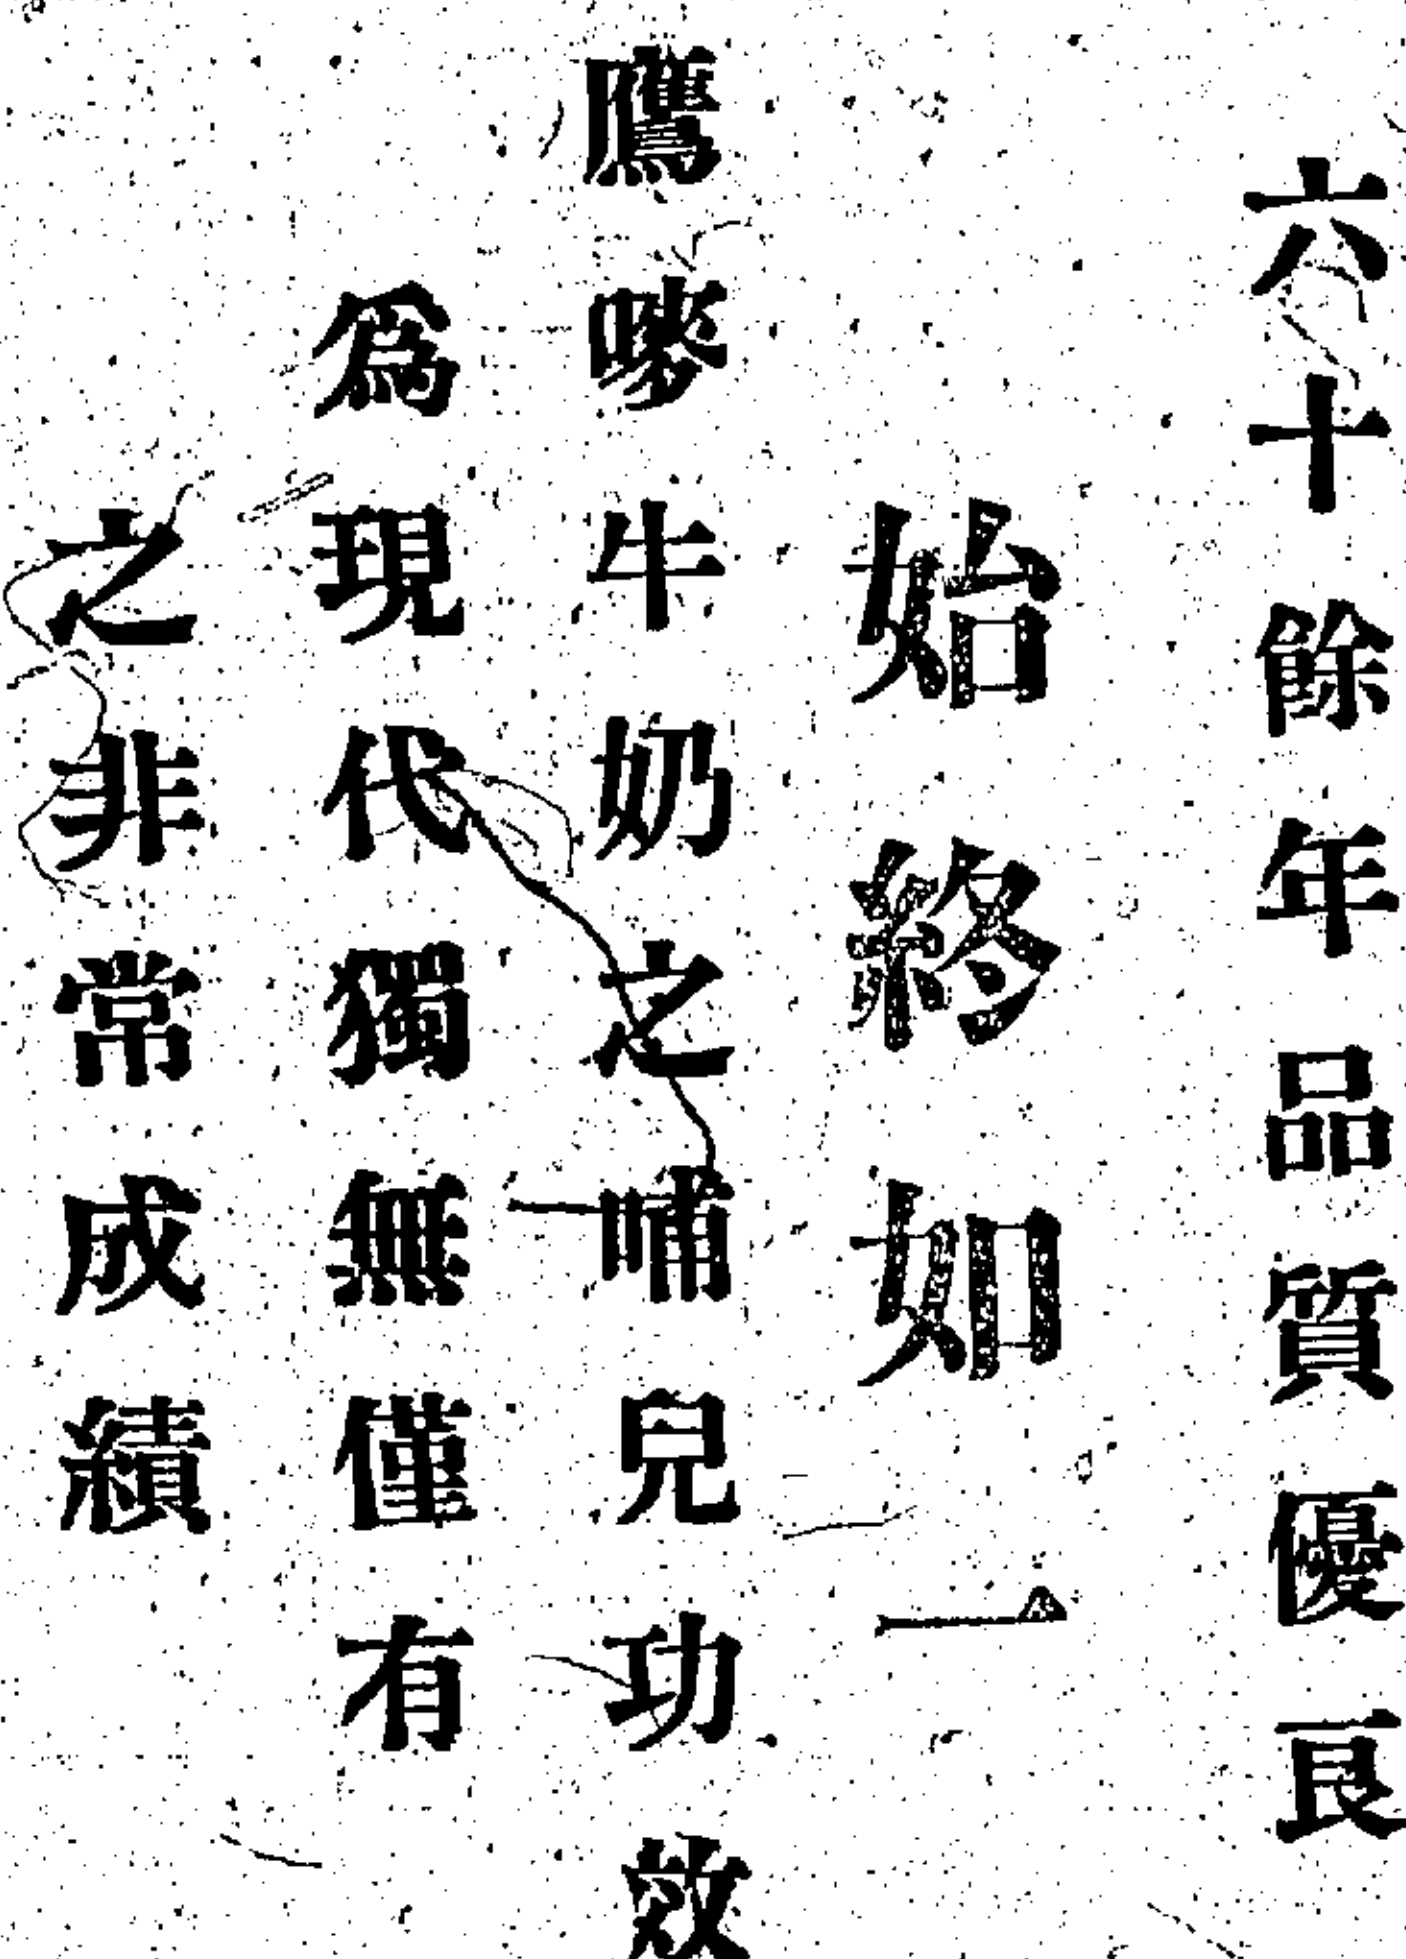 六十餘年品質優良
始終如一
鷹嘜牛奶之哺兒功效
爲現代獨無僅有
之非常成績